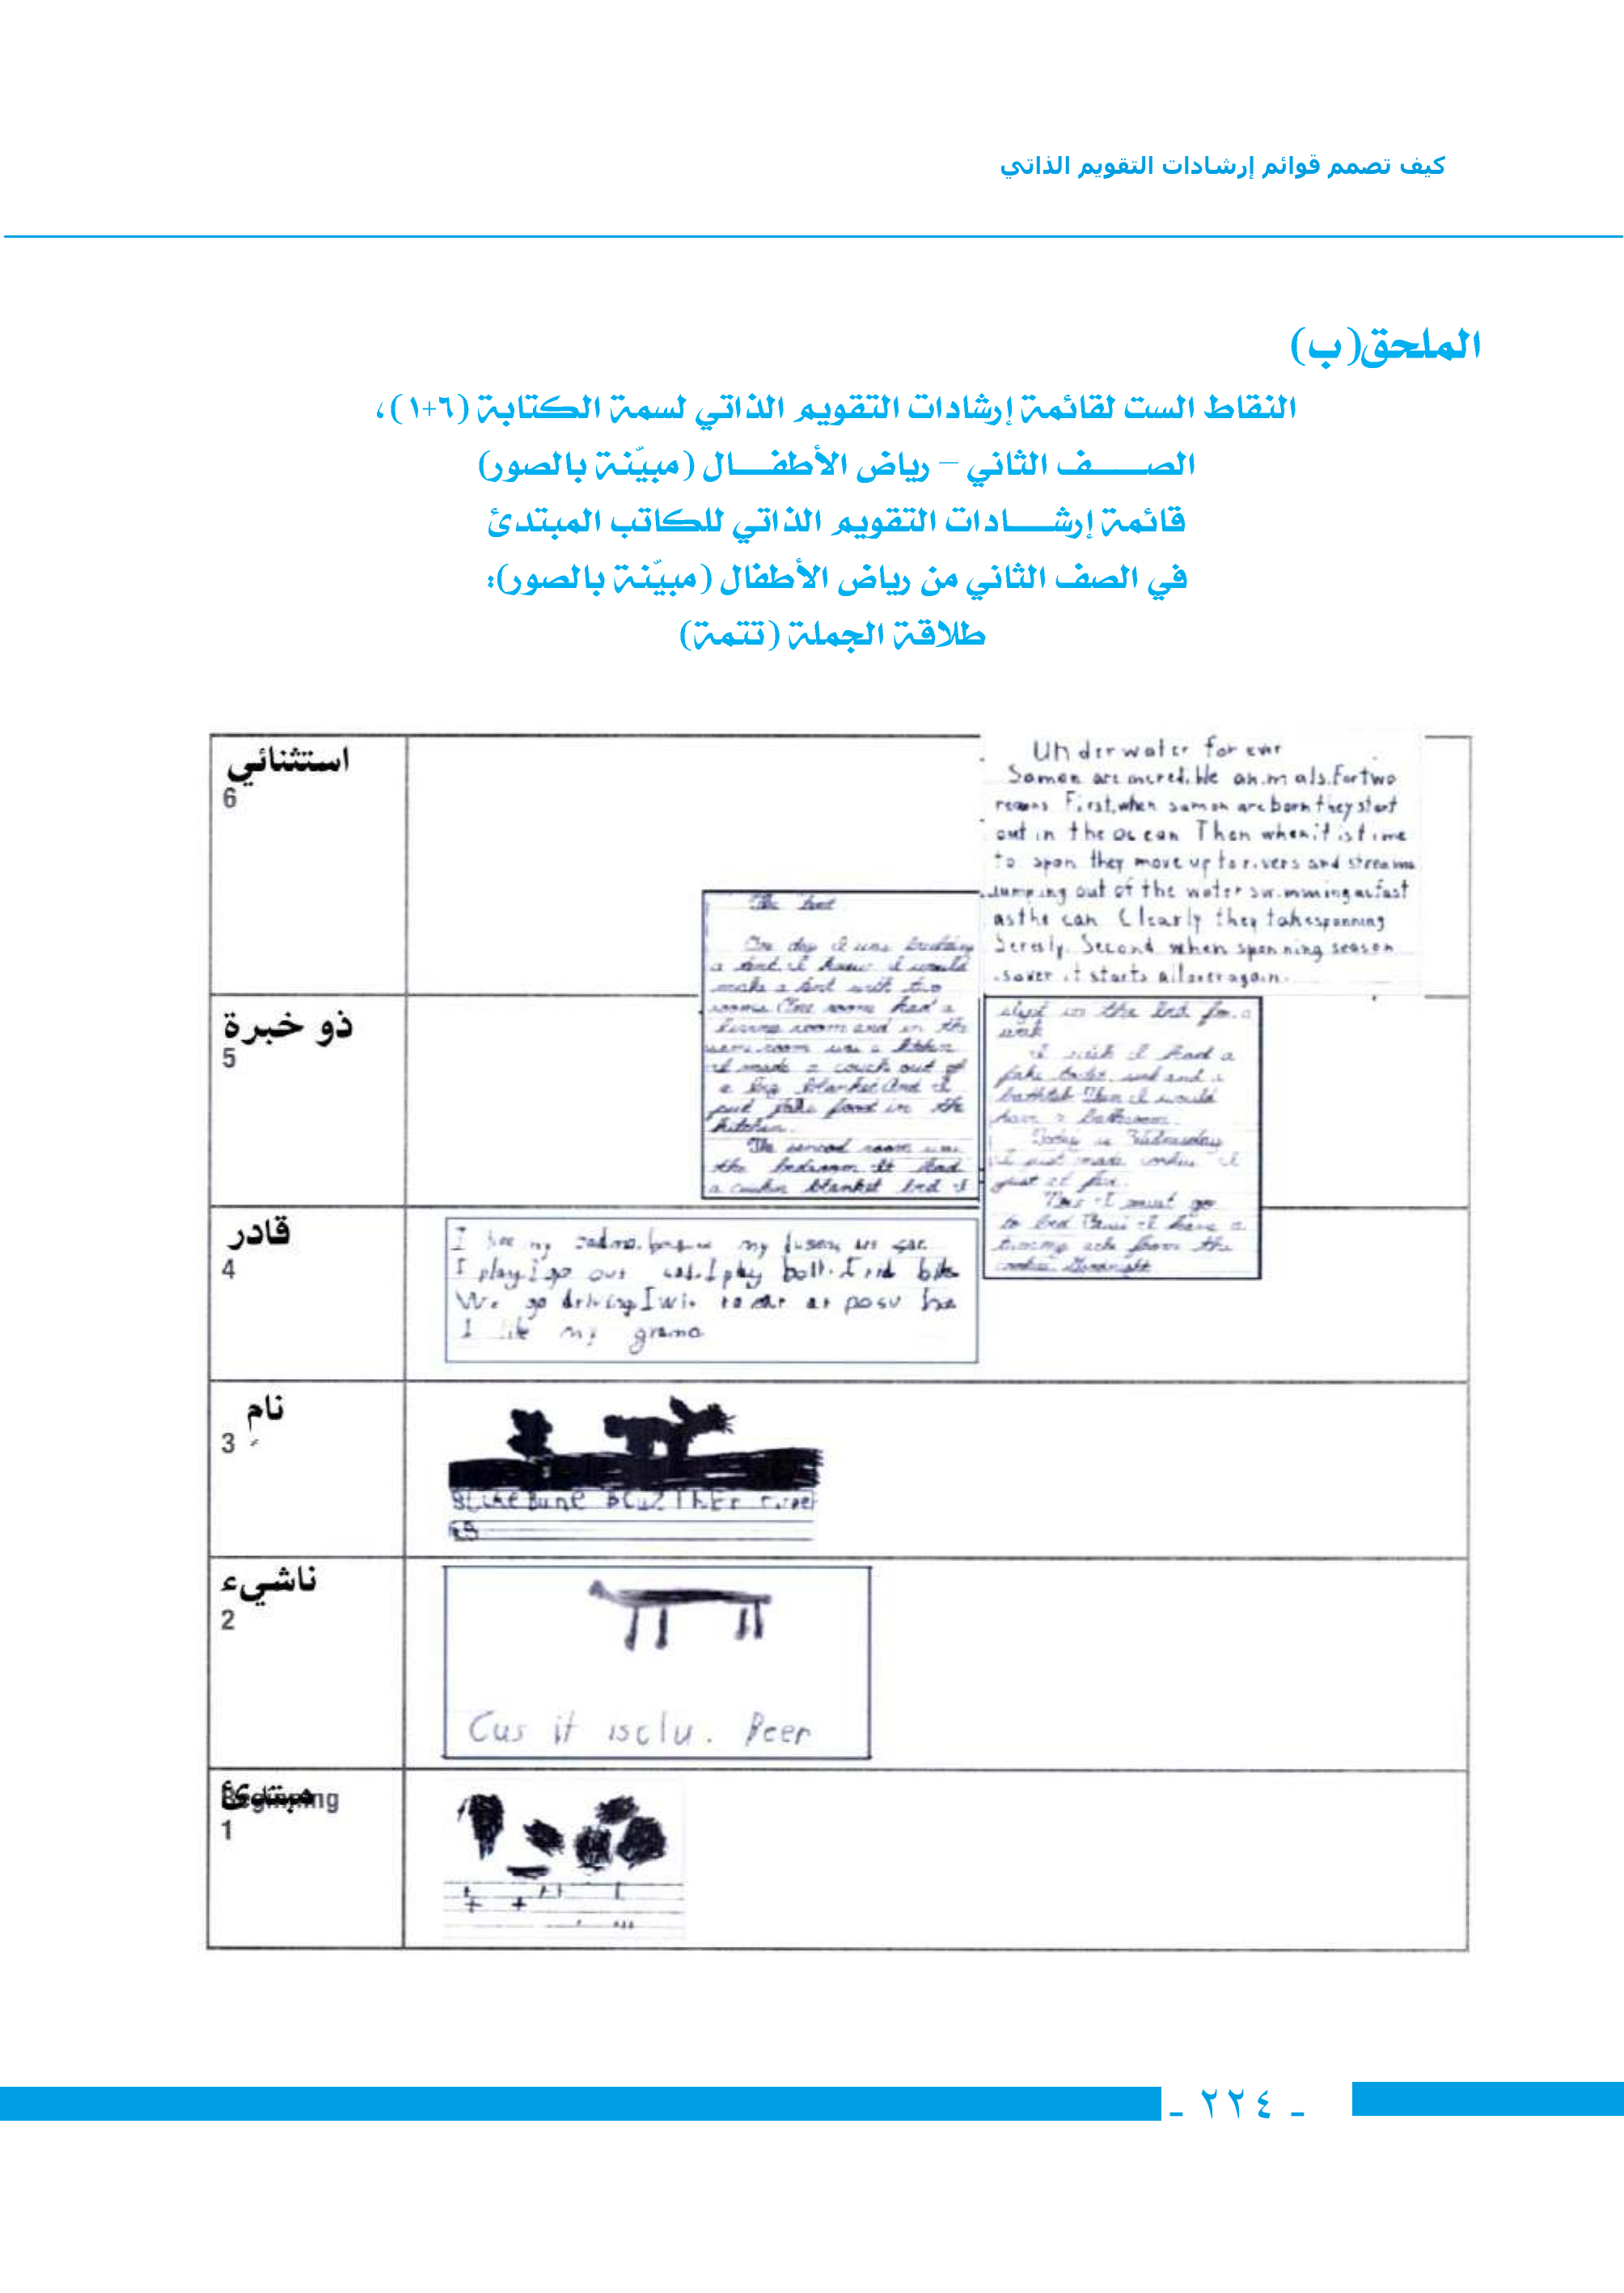 كيف تصمم قوائم إرشادات التقويم الذاتي
الملحق(ب)
النقاط الست لقائمة إرشادات التقويم الذاتي لسمة الكتابة (٦+١)،
الصف الثاني – رياض الأطفال (مبيّنة بالصور)
قائمة إرشادات التقويم الذاتي للكاتب المبتدئ
في الصف الثاني من رياض الأطفال (مبيّنة بالصور):
طلاقة الجملة (تتمة)
استثنائي
6
Underwater for ever
Samon are incredible animals. For two
reasons First, when samon are born they start
out in the ocean Then when it is time
to spon they move up to rivers and streams
Jumping out of the water swimming as fast
as the can Clearly they take sponning
Seresly. Second when sponning season
is over it starts all over again.
ذو خبرة
5
One day I was building
a tent. I knew I would
make a tent with two
rooms. One room had a
living room and in the
same room was a
I made a couch out of
a big blanket. And I
put fake food in the
kitchen.
The second room was
the bedroom It had
a blanket bed I
slept in the bed for a
I wish I had a
fake and a
bathtub Then I would
have a bathroom.
Today is Wednesday
I just made cookies I
just at five.
This I must go
to bed I have a
tummy ack from the
cookies Goodnight
قادر
4
I my my
I play I go out I play boll. I rid bike
We go driving I
I like my grama
نامٍ
3
BLIKEBUNE BCUZ THEr
ناشيء
2
Cus it isclu. Peer
مبتدئ
Beginning
1
- ٢٢٤ -